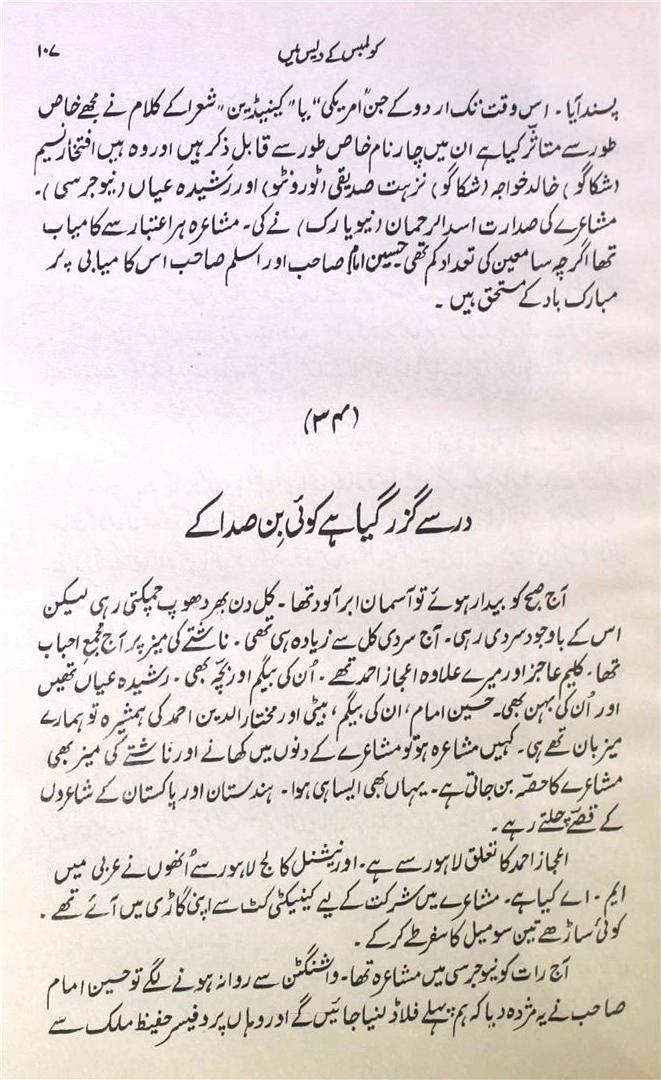 ۱۰۷
کولمبس کے دیس میں
پسند آیا۔ اس وقت تک اردو کے جن امریکی "یا" کینیڈین" شعرا کے کلام نے مجھے خاص
طور سے متاثر کیا ہے ان میں چار نام خاص طور سے قابل ذکر ہیں اور وہ ہیں افتخار نسیم
(شکاگو) خالد خواجہ (شکاگو) نزہت صدیقی (ٹورونٹو) اور رشیدہ عیاں (نیوجرسی)۔
مشاعرے کی صدارت اسد الرحمان (نیویارک) نے کی۔ مشاعرہ ہر اعتبار سے کامیاب
تھا اگرچہ سامعین کی تعداد کم تھی حسین امام صاحب اور اسلم صاحب اس کامیابی پر
مبارک باد کے مستحق ہیں۔
(۳۴)
در سے گزر گیا ہے کوئی بِن صدا کے
آج صبح کو بیدار ہوئے تو آسمان ابر آلود تھا۔ کل دن بھر دھوپ چمکتی رہی لیکن
اس کے باوجود سردی رہی۔ آج سردی کل سے زیادہ ہی تھی۔ ناشتے کی میز پر آج مجمعِ احباب
تھا۔ کلیم عاجز اور میرے علاوہ اعجاز احمد تھے۔ اُن کی بیگم اور بچّہ بھی۔ رشیدہ عیاں تھیں
اور اُن کی بہن بھی۔ حسین امام، ان کی بیگم، بیٹی اور مختار الدین احمد کی ہمشیرہ تو ہمارے
میزبان تھے ہی۔ کہیں مشاعرہ ہو تو مشاعرے کے دنوں میں کھانے اور ناشتے کی میز بھی
مشاعرے کا حصّہ بن جاتی ہے۔ یہاں بھی ایسا ہی ہوا۔ ہندستان اور پاکستان کے شاعروں
کے قصّے چلتے رہے۔
اعجاز احمد کا تعلق لاہور سے ہے۔ اورنیٹل کالج لاہور سے اُنھوں نے عربی میں
ایم۔اے کیا ہے۔ مشاعرے میں شرکت کے لیے کینیکٹی کٹ سے اپنی گاڑی میں آئے تھے۔
کوئی ساڑھے تین سو میل کا سفر طے کر کے۔
آج رات کو نیوجرسی میں مشاعرہ تھا۔ واشنگٹن سے روانہ ہونے لگے تو حسین امام
صاحب نے یہ مژدہ دیا کہ ہم پہلے فلاڈلفیا جائیں گے اور وہاں پروفیسر حفیظ ملک سے